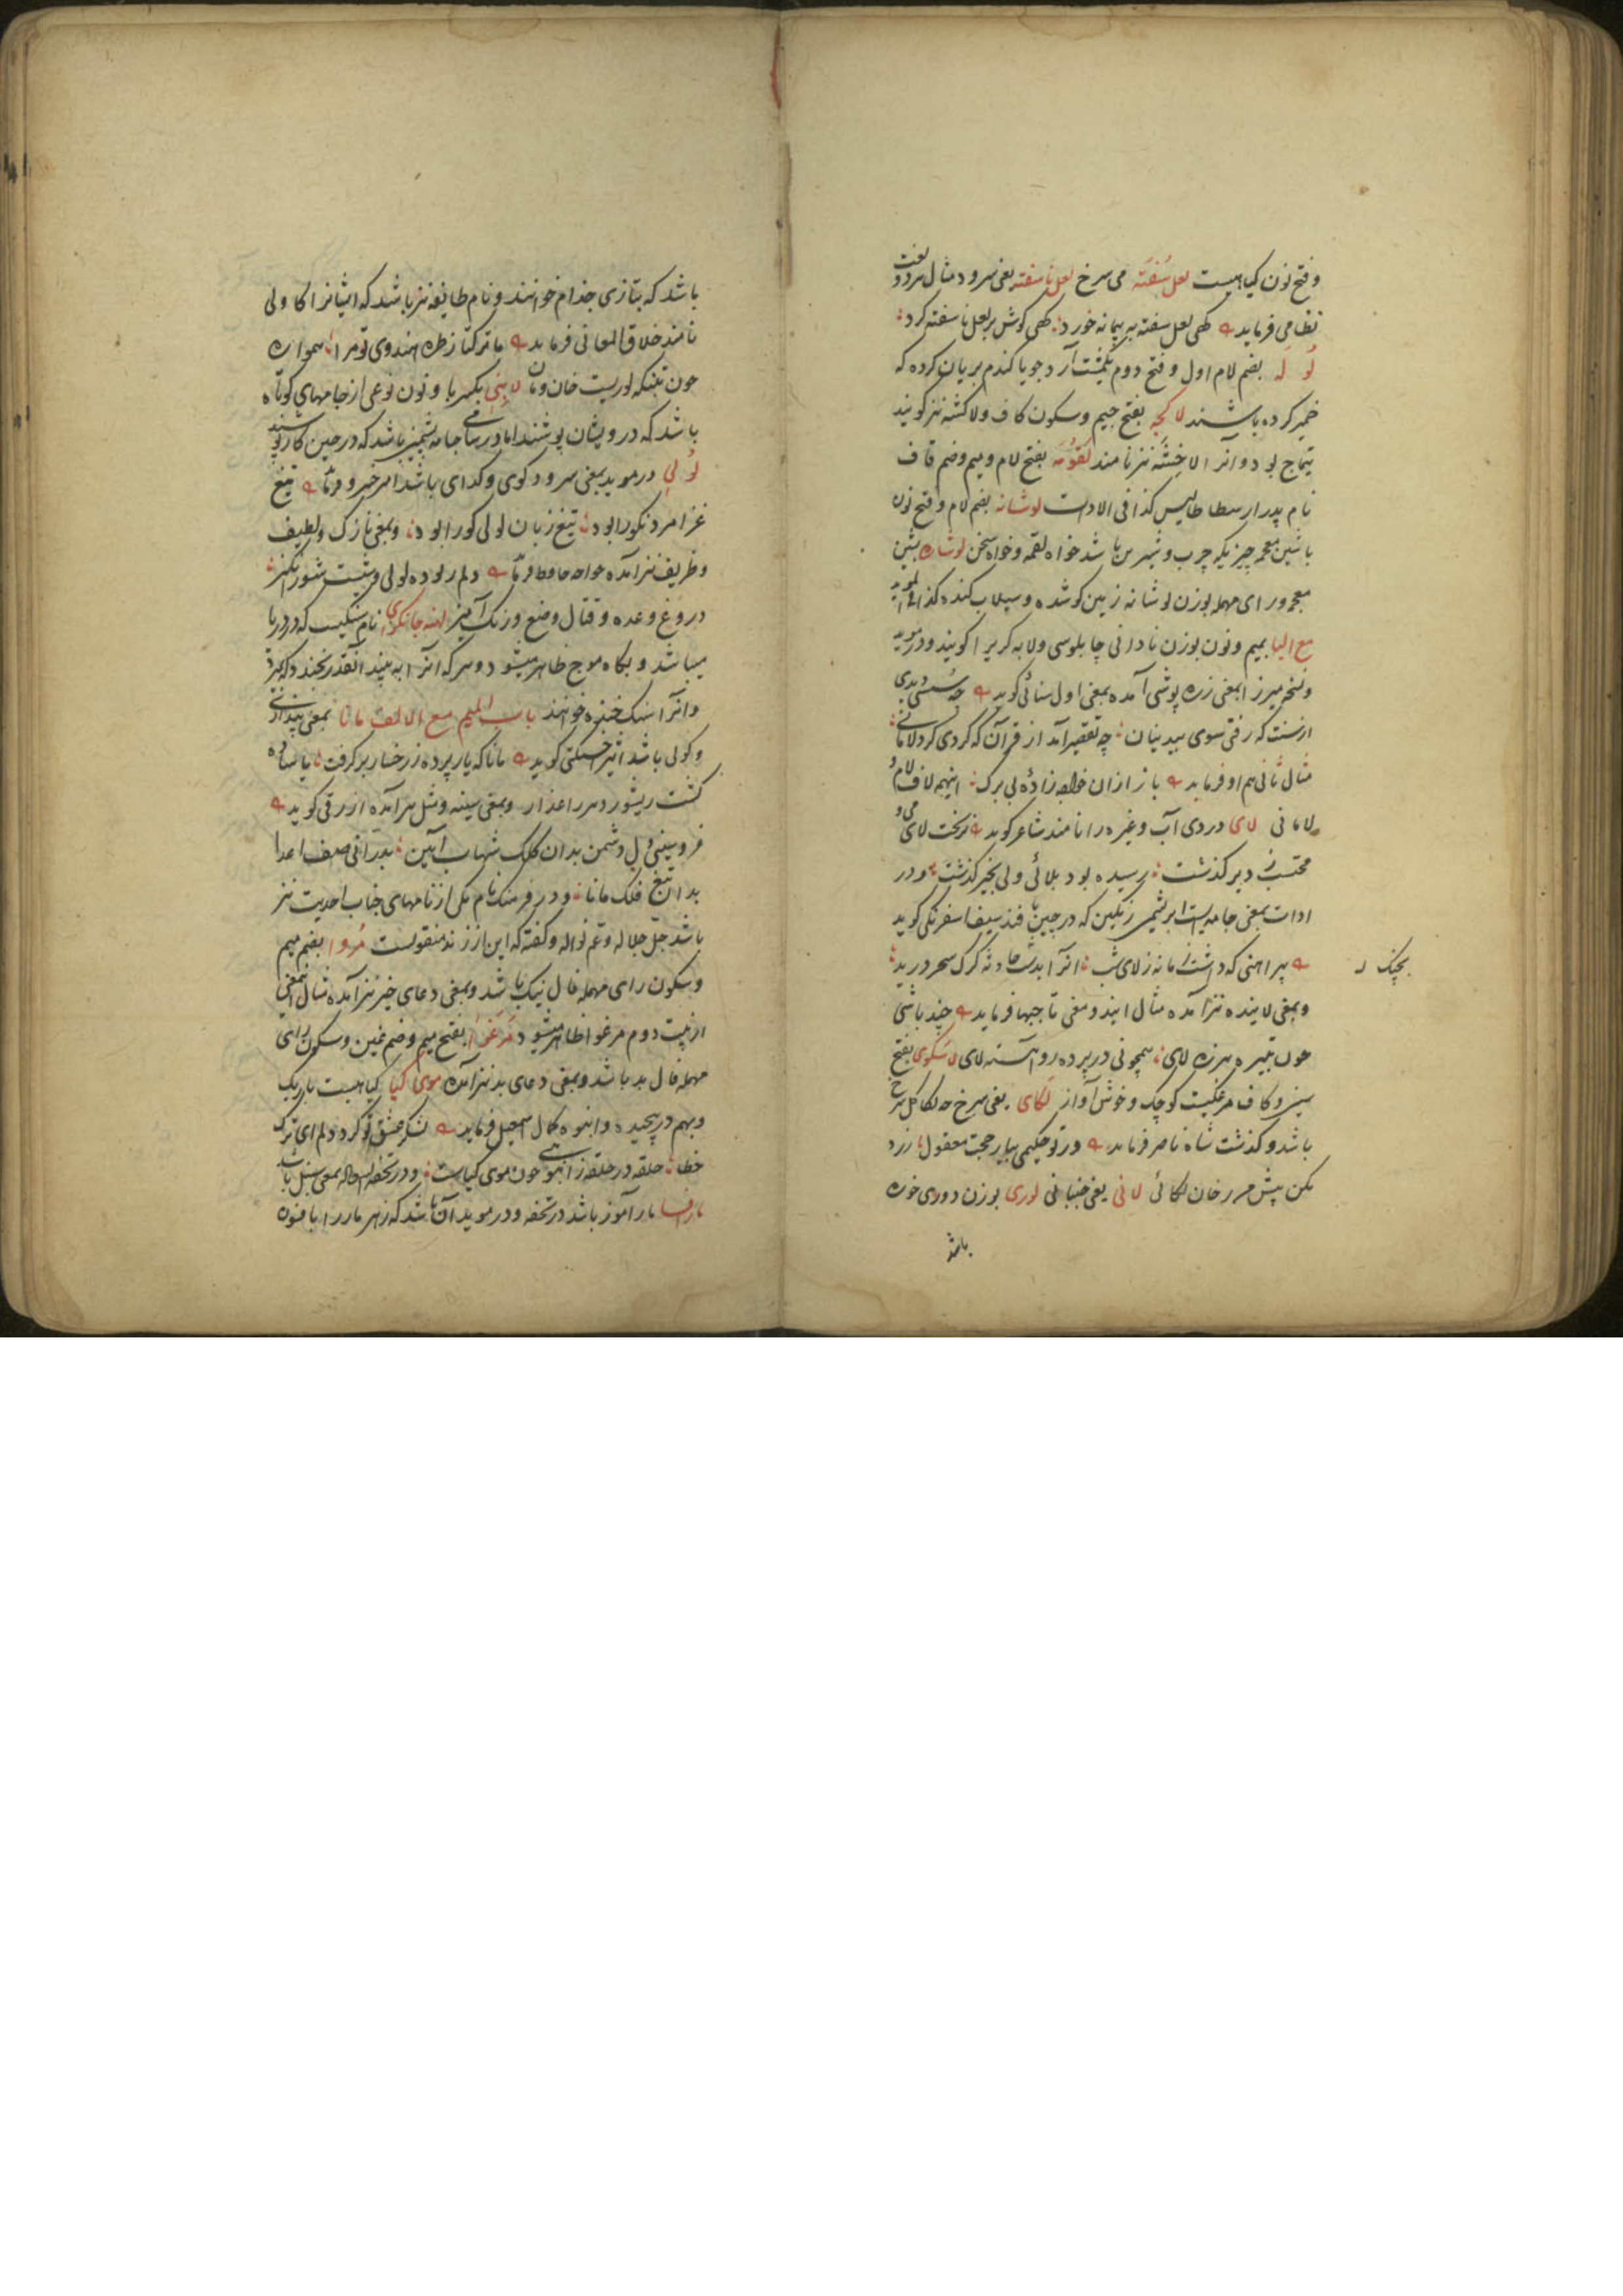 و فتح نون گیاهیست لعل سُفته می سرخ لعل ناسفته یعنی سرود مثال هردو لغت
نظامی فرماید گهی لعل سفته به پیمانه خورد گهی گوش بر لعل ناسفته کرد
لُو لَه بضم لام اول و فتح دوم یکمشت آرد جو یا گندم بریان کرده که
خمیر کرده باشند لا کچه بفتح جیم و سکون کاف ولاکشه نیز گویند
تیماج بود و آنرا لاخشه نیز نامند لَقَوُمه بفتح لام و میم وضم قاف
نام پدر ارسطاطالیس کذا فی الادات لوشانه بضم لام و فتح نون
با شین معجمه چیزیکه چرب و شیرین باشد خواه لقمه و خواه سخن لوشاره بشین
معجمه و رای مهمله بوزن لوشانه زمین گو شده و سیلاب کنده کذا فی الموید
مع الیا بمیم و نون بوزن نادانی چاپلوسی ولابه گری را گویند و در موید
و نسخه میرزا بمعنی زره پوشی آمده بمعنی اول سنائی گوید چه سستی دیدی
از سنت که رفتی سوی بیدینان چه تقصیر آمد از قرآن که کردی گرد لامانی
مثال ثانی هم او فرماید باز ازان خواجه زاده بی برگ اینهمه لاف و لام و
لامانی لای دردی آب و غیره را نامند شاعر گوید بریخت لای می و
محتسب ز دیر گذشت رسیده بود بلائی ولی بخیر گذشت و در
ادات بمعنی جامه‌ایست ابریشمی رنگین که در چین بافند سیف اسفرنگی گوید
پیراهنی که داشت زمانه ز لای شب آنرا بدست حادثه گرگ سحر درید
بچنگ
و بمعنی لاینده نیز آمده مثال اینه و معنی تاجبها فرماید چند باشی
چون تبیره هرزه لای همچو نی در پرده رو آهسته لای لاسکوی بفتح
سین و کاف مرغکیست کوچک و خوش آواز لکای یعنی سرخ چه لکا گل سرخ
باشد و گذشت شاه ناصر فرماید ور تو حکیمی بیار حجت معقول زرد
مکن پیش من رخان لکائی لانی یعنی جنبانی لوری بوزن دوری خوره
باشد
باشد که بتازی جذام خوانند و نام طایفه نیز باشد که ایشانرا کاولی
نامند خلاق المعانی فرماید با ترکتاز طره هندوی تو مرا همواره
چون بنگه لوریست خان و مان لابنی بکسر با و نون نوعی از جامهای کوتاه
باشد که درویشان پوشند اما در سامی جامه پشمین باشد که در حین کار پوشند
لُو لی در موید بمعنی سرود گوی و گدای باشد امیر خسرو فرماید تیغ
غزا مرد نکو را بود تیغ زبان لولی کور را بود و بمعنی نازک و لطیف
و ظریف نیز آمده خواجه حافظ فرماید دلم ربوده لولی وشیست شورانگیز
دروغ وعده و قتال وضع و رنگ آمیز لهنه جانکزای نام سنگیست که در دریا
میباشد و بگاه موج ظاهر میشود و هر که آنرا به بیند آنقدر بخندد که بمیرد
و آنرا سنگ خنده خوانند باب المیم مع الالف مانا بمعنی پنداری
و گوئی باشد اثیر اخسیکتی گوید مانا که یار پرده ز رخسار بر گرفت یا ساده
گشت ریشور دهر را عذار و بمعنی بعینه و مثل هم آمده ازرقی گوید
فرو بینی دل دشمن بدان کلک شهاب آیین بدرانی صف اعدا
بدان تیغ فلک مانا و در فرهنگ نام یکی از نامهای جناب احدیت نیز
باشد جل جلاله و عم نواله و گفته که این از زند منقولست مُروا بضم میم
و سکون رای مهمله فال نیک باشد و بمعنی دعای خیر نیز آمده مثال این معنی
از بیت دوم مرغوا ظاهر میشود مَرغُوا بفتح میم وضم غین و سکون رای
مهمله فال بد باشد و بمعنی دعای بد نیز آمده موی گیا گیاهیست باریک
و بهم در پیچیده و انبوه کمال اسمعیل فرماید لشکر عشق تو گرد دلم ای ترک
خطا حلقه در حلقه ز انبوهی چون موی گیاست و در تحفه السعاده بمعنی سنبل باشد
مارفسا مار آموز باشد در تحفه و در موید آن باشد که زهر مار را با فسون